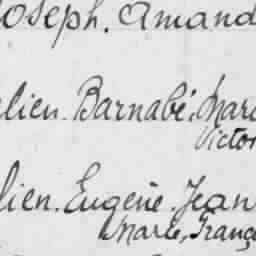 oseph. Amand
lien. Barnabé, Mari
Victor
lien. Eugène. Jean
Marie, Franç